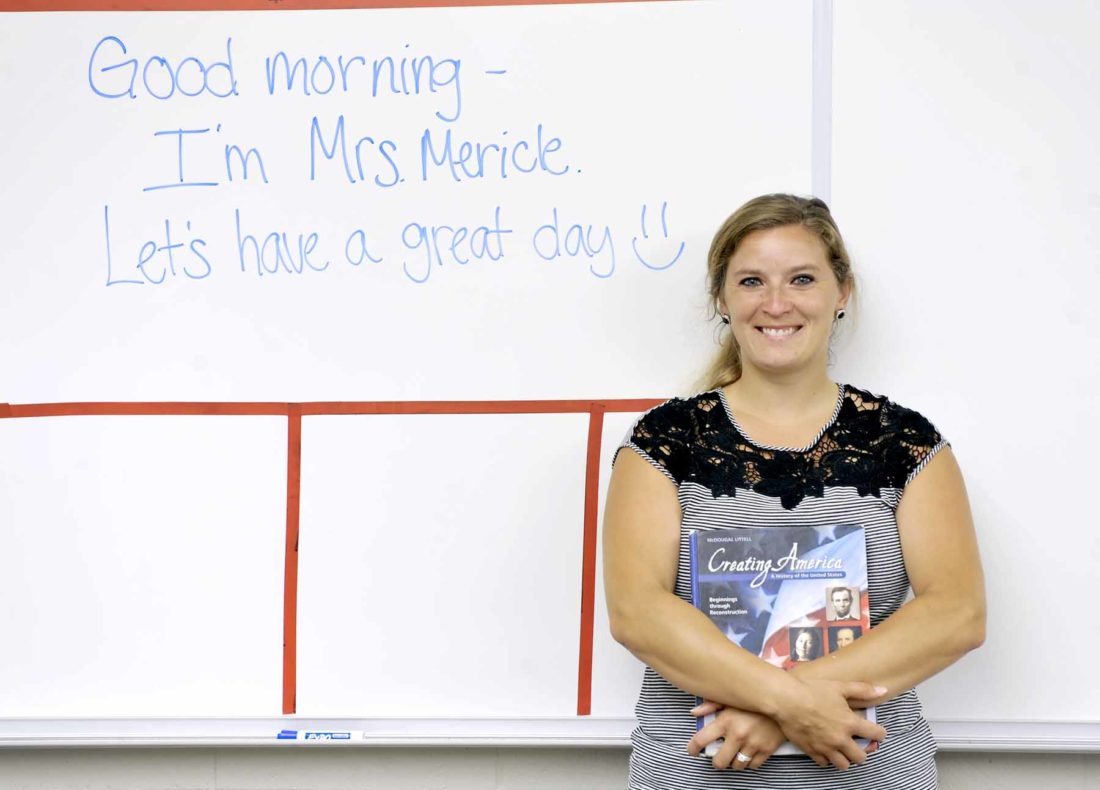 Good morning -
I'm Mrs. Mericle.
Let's have a great day
McDOUGAL LITTELL
Creating America
A History of the United States
Beginnings
through
Reconstruction
EXPO